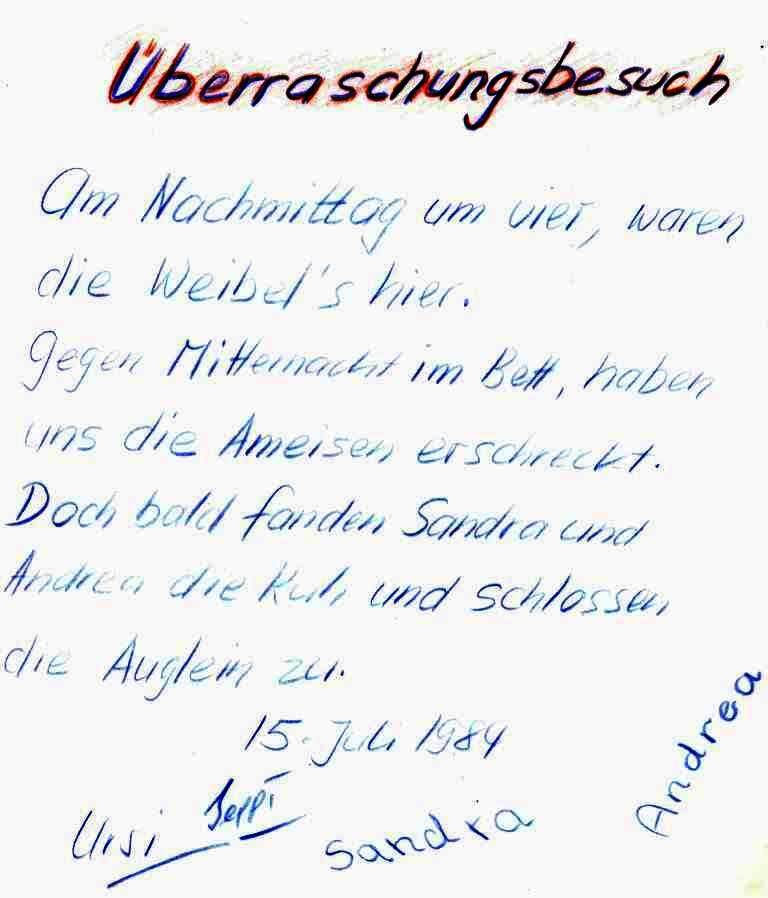 Überraschungsbesuch
Am Nachmittag um vier, waren
die Weibel's hier.
Gegen Mitternacht im Bett, haben
uns die Ameisen erschreckt.
Doch bald fanden Sandra und
Andrea die Kuh und schlossen
die Äuglein zu.
15. Juli 1984
Ursi Seppi Sandra Andrea